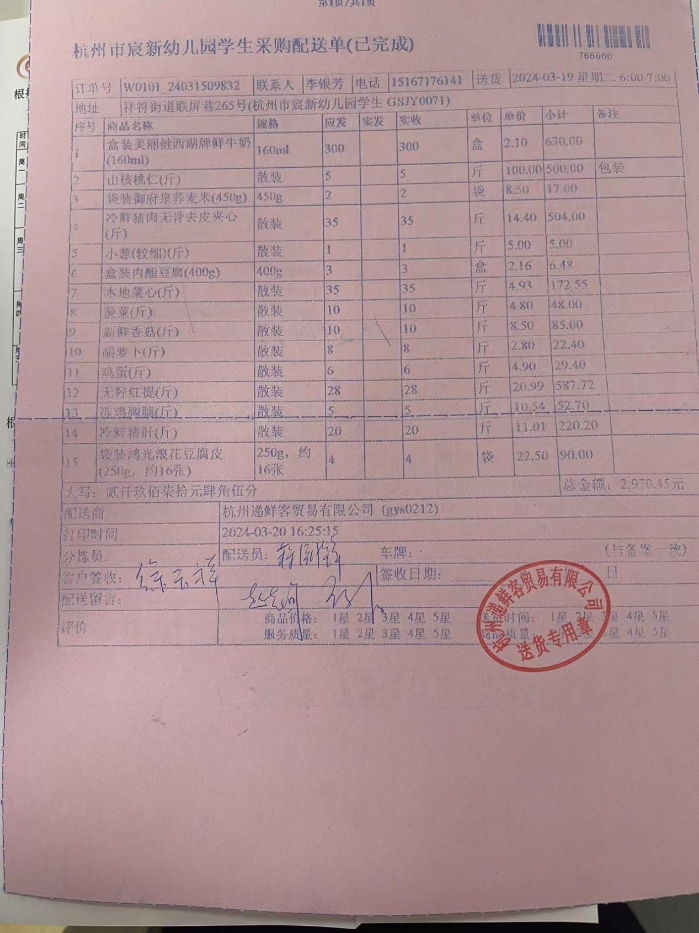 第1页/共1页
杭州市宸新幼儿园学生采购配送单(已完成)
766666
订单号 W0101_24031509832 联系人 李银芳 电话 15167176141 送货 2024-03-19 星期二 6:00-7:00
地址 祥符街道联屏巷265号(杭州市宸新幼儿园学生 GSJY0071)
序号 商品名称 规格 应发 实发 实收 单位 单价 小计 备注
1 盒装美丽健西湖牌鲜牛奶(160ml) 160ml 300 300 盒 2.10 630.00
2 山核桃仁(斤) 散装 5 5 斤 100.00 500.00 包装
3 袋装御府泉荞麦米(450g) 450g 2 2 袋 8.50 17.00
4 冷鲜猪肉无骨去皮夹心(斤) 散装 35 35 斤 14.40 504.00
5 小葱(较细)(斤) 散装 1 1 斤 5.00 5.00
6 盒装内酯豆腐(400g) 400g 3 3 盒 2.16 6.48
7 本地菜心(斤) 散装 35 35 斤 4.93 172.55
8 菠菜(斤) 散装 10 10 斤 4.80 48.00
9 新鲜香菇(斤) 散装 10 10 斤 8.50 85.00
10 胡萝卜(斤) 散装 8 8 斤 2.80 22.40
11 鸡蛋(斤) 散装 6 6 斤 4.90 29.40
12 无籽红提(斤) 散装 28 28 斤 20.99 587.72
13 冻鸡胸脯(斤) 散装 5 5 斤 10.54 52.70
14 冷鲜猪肝(斤) 散装 20 20 斤 11.01 220.20
15 袋装鸿光浪花豆腐皮(250g，约16张) 250g，约16张 4 4 袋 22.50 90.00
大写：贰仟玖佰柒拾元肆角伍分 总金额：2,970.45元
配送商 杭州递鲜客贸易有限公司 (gys0212)
打印时间 2024-03-20 16:25:15
分拣员 配送员： 车牌： (与备案一致)
客户签收： 签收日期： 日
配送留言：
评价 商品价格： 1星 2星 3星 4星 5星 送货时间： 1星 2星 3星 4星 5星
服务质量： 1星 2星 3星 4星 5星 商品质量 1星 2星 3星 4星 5星
杭州递鲜客贸易有限公司
送货专用章